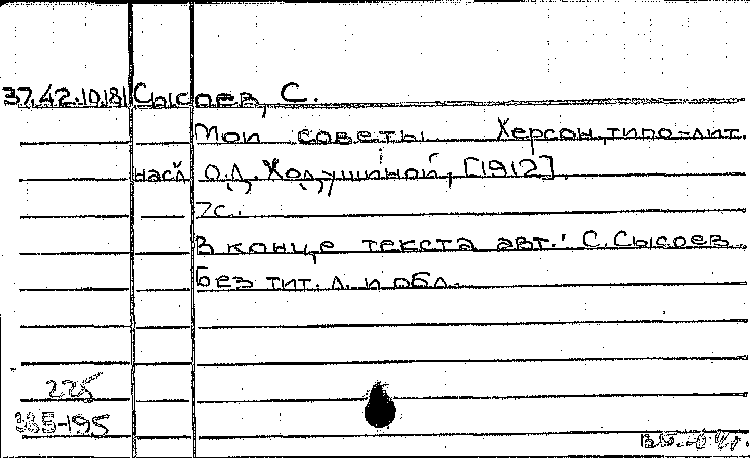 37.42.10.181 Сысоев, С.
Мои советы Херсон, типо-лит.
насл О.Д. Ходушиной, [1912].
7с.
В конце текста авт.: С. Сысоев.
Без тит. л. и обл.
225
385-195